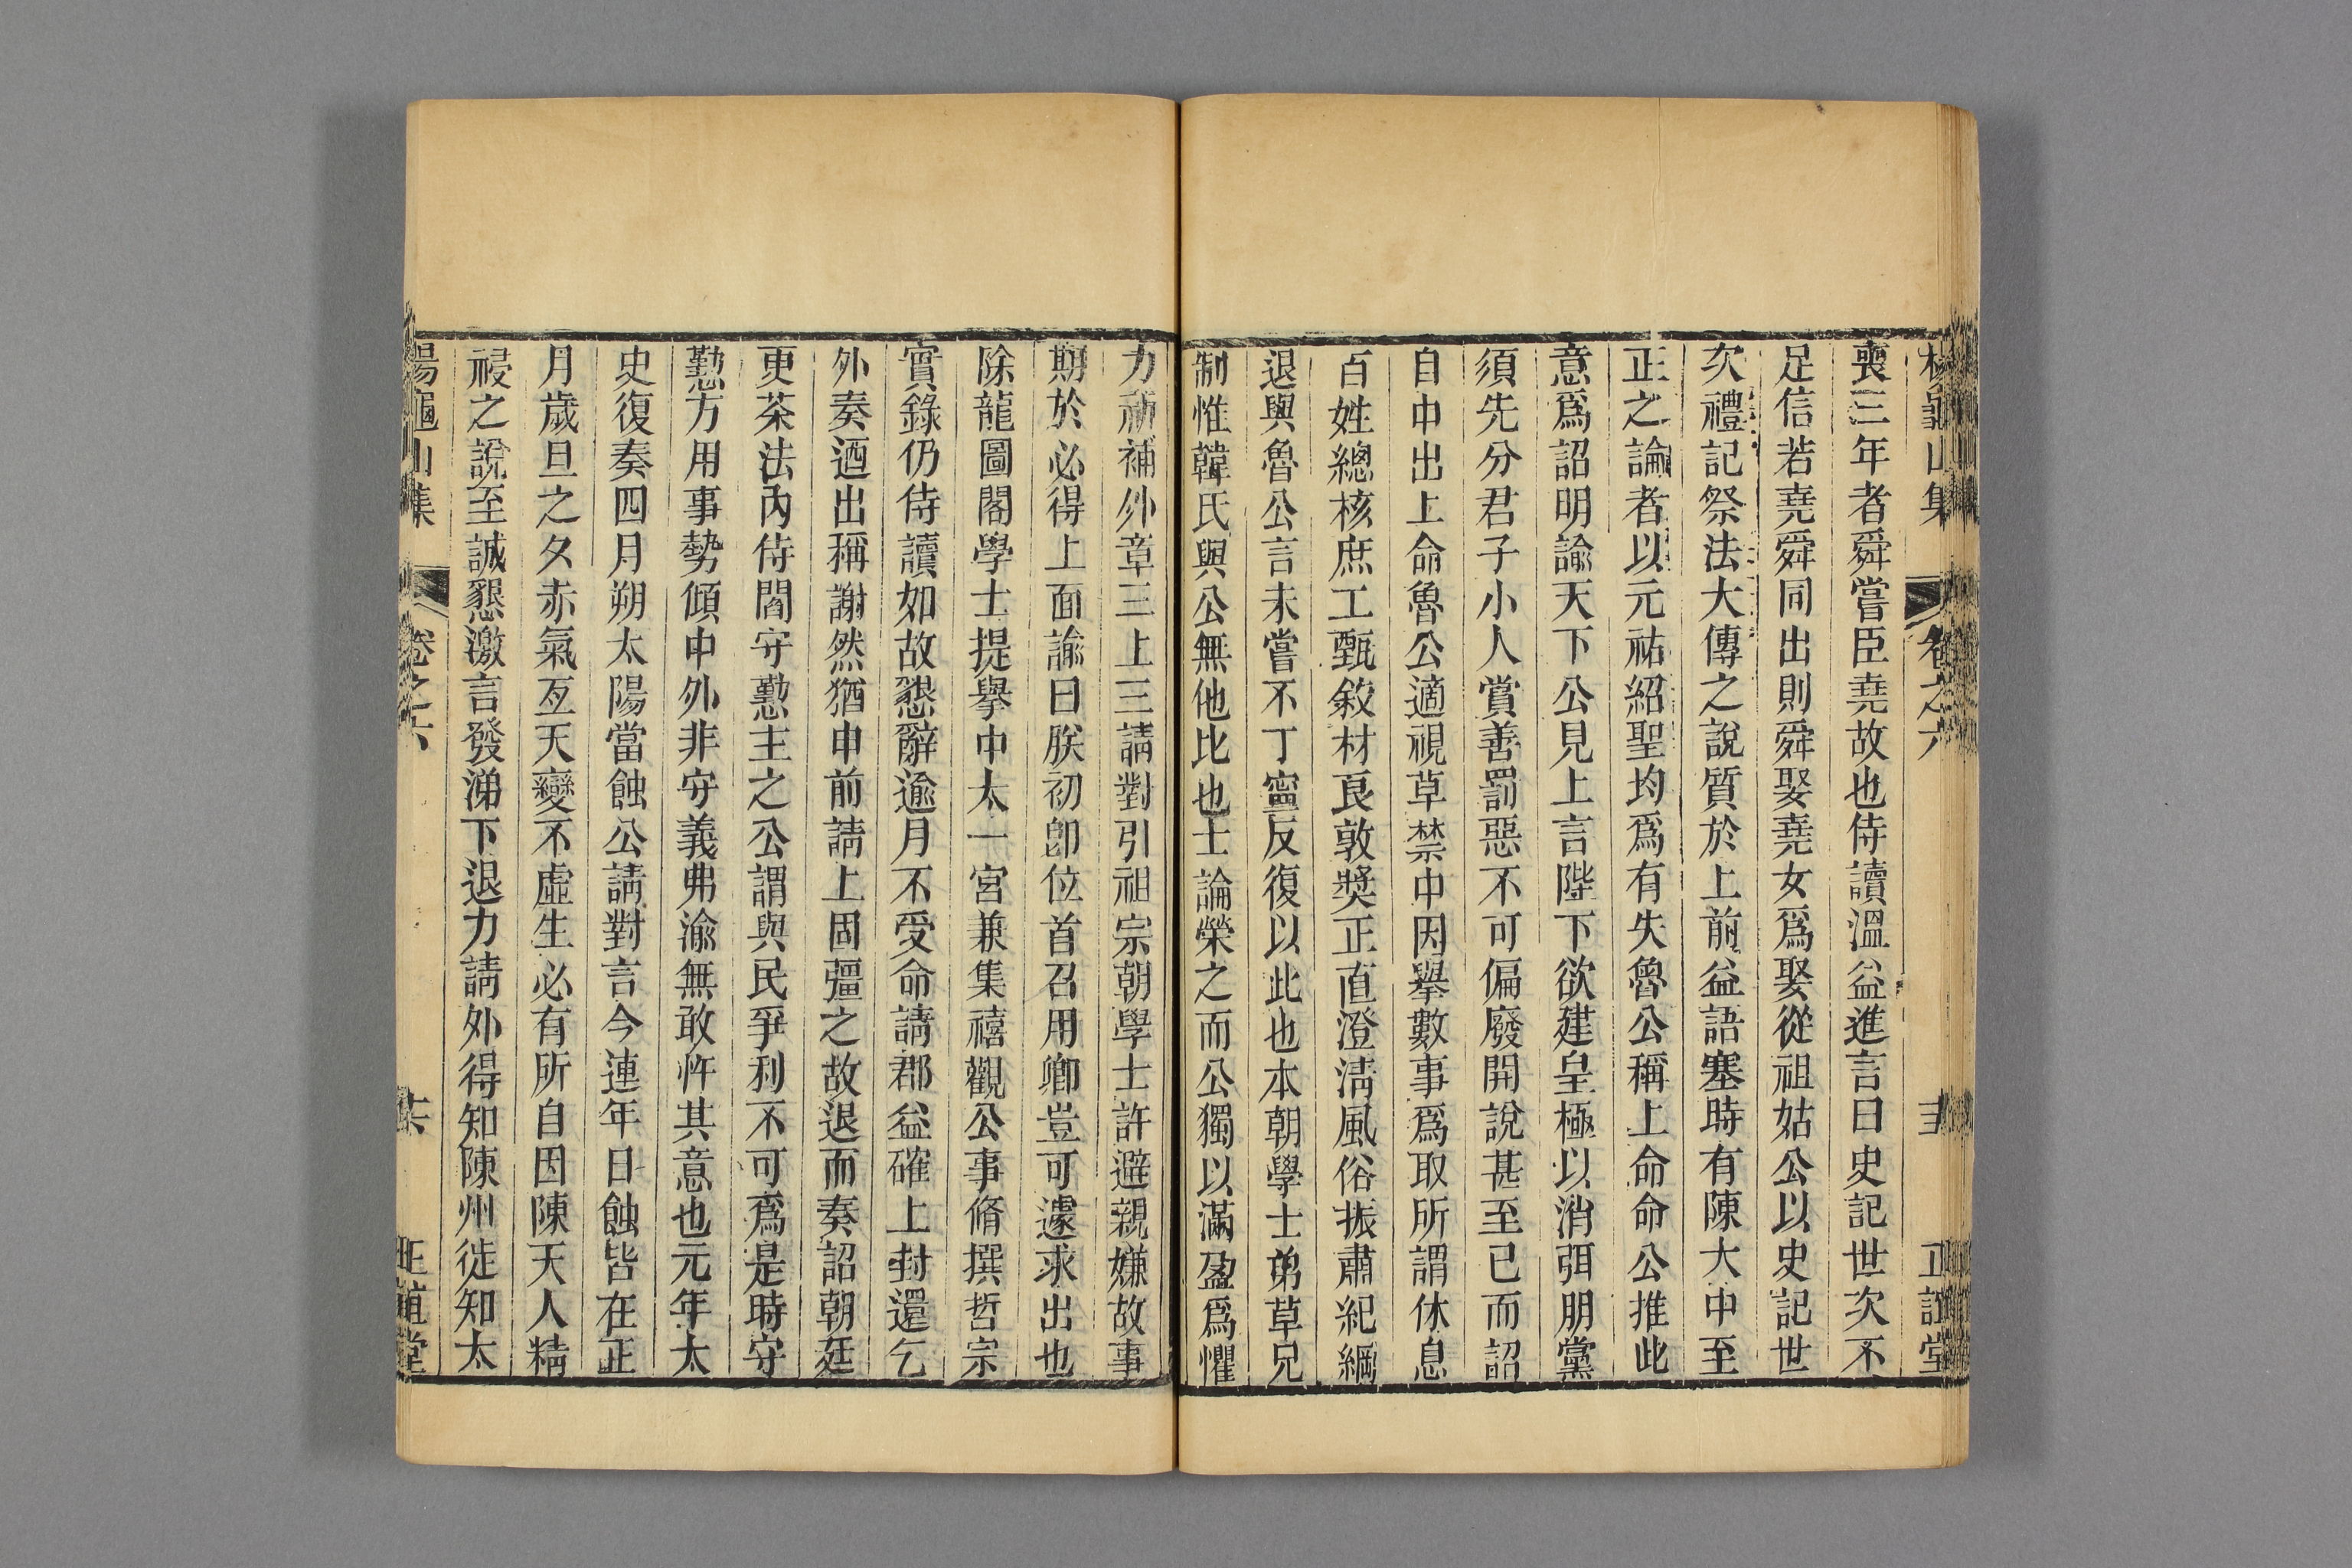 喪三年者舜嘗臣堯故也侍讀溫益進言曰史記世次不
足信若堯舜同出則舜娶堯女爲娶從祖姑公以史記世
次禮記祭法大傳之說質於上前益語塞時有陳大中至
正之論者以元祐紹聖均爲有失魯公稱上命命公推此
意爲詔明諭天下公見上言陛下欲建皇極以消弭朋黨
須先分君子小人賞善罰惡不可偏廢開說甚至已而詔
自中出上命魯公適視草禁中因舉數事爲取所謂休息
百姓總核庶工甄敘材良敦獎正直澄淸風俗振肅紀綱
退與魯公言未嘗不丁寧反復以此也本朝學士弟草兄
制惟韓氏與公無他比也士論榮之而公獨以滿盈爲懼
力祈補外章三上三請對引祖宗朝學士許避親嫌故事
期於必得上面諭曰朕初卽位首召用卿豈可遽求出也
除龍圖閣學士提舉中太一宮兼集禧觀公事脩撰哲宗
實錄仍侍讀如故懇辭逾月不受命請郡益確上封還乞
外奏迺出稱謝然猶申前請上固彊之故退而奏詔朝廷
更茶法內侍閻守懃主之公謂與民爭利不可爲是時守
懃方用事勢傾中外非守義弗渝無敢忤其意也元年太
史復奏四月朔太陽當蝕公請對言今連年日蝕皆在正
月歲旦之夕赤氣亙天變不虛生必有所自因陳天人精
祲之說至誠懇激言發涕下退力請外得知陳州徙知太
楊龜山集 卷之六